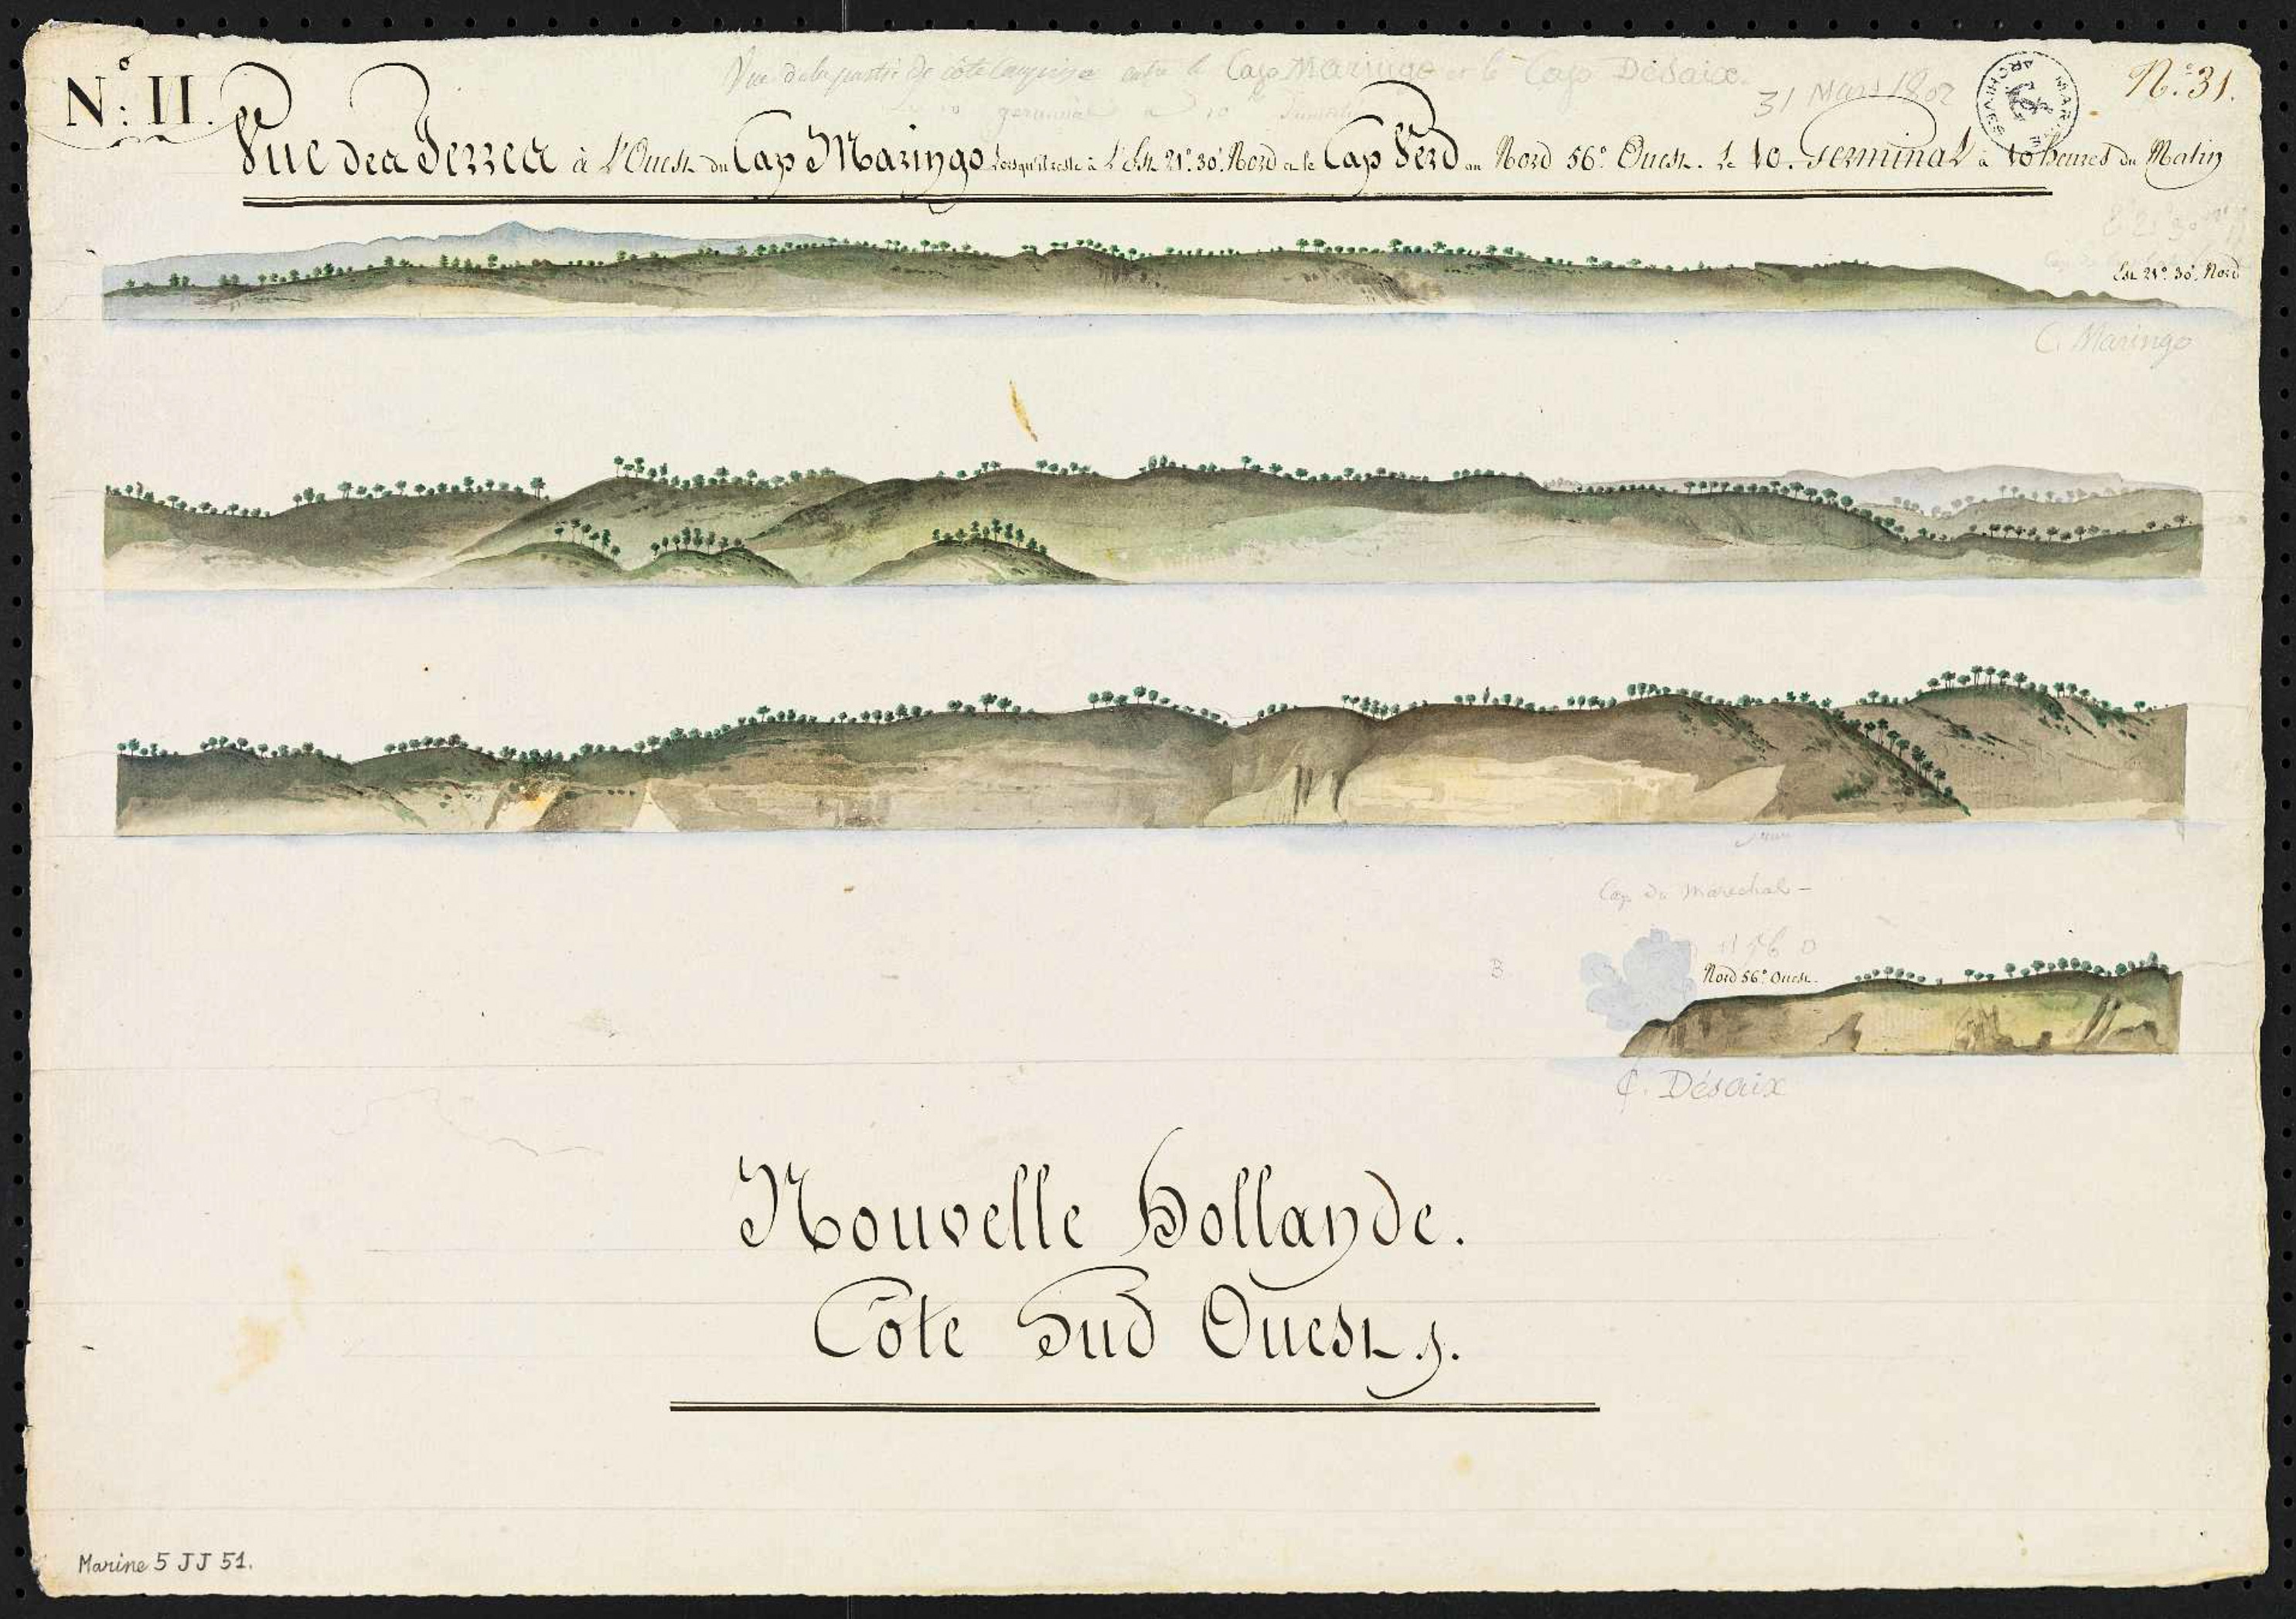 Vue de la partie de côte comprise entre le Cap Maringo et le Cap Désaix.
germinal à 10
31 Mars 1802
N.º 31.
Nº: II.
Vue des Terres à L'Ouest du Cap Maringo Lorsqu'il reste à L'Est 21º. 30'. Nord et le Cap Verd au Nord 56º. Ouest. Le 10. Germinal à 10 heures du Matin
ARCHIVES MARINE
Est 21º. 30'. Nord
C. Maringo
Cap du Marechal -
Nord 56º. Ouest.
C. Désaix
Nouvelle Hollande.
Côte Sud Ouest.
Marine 5 JJ 51.